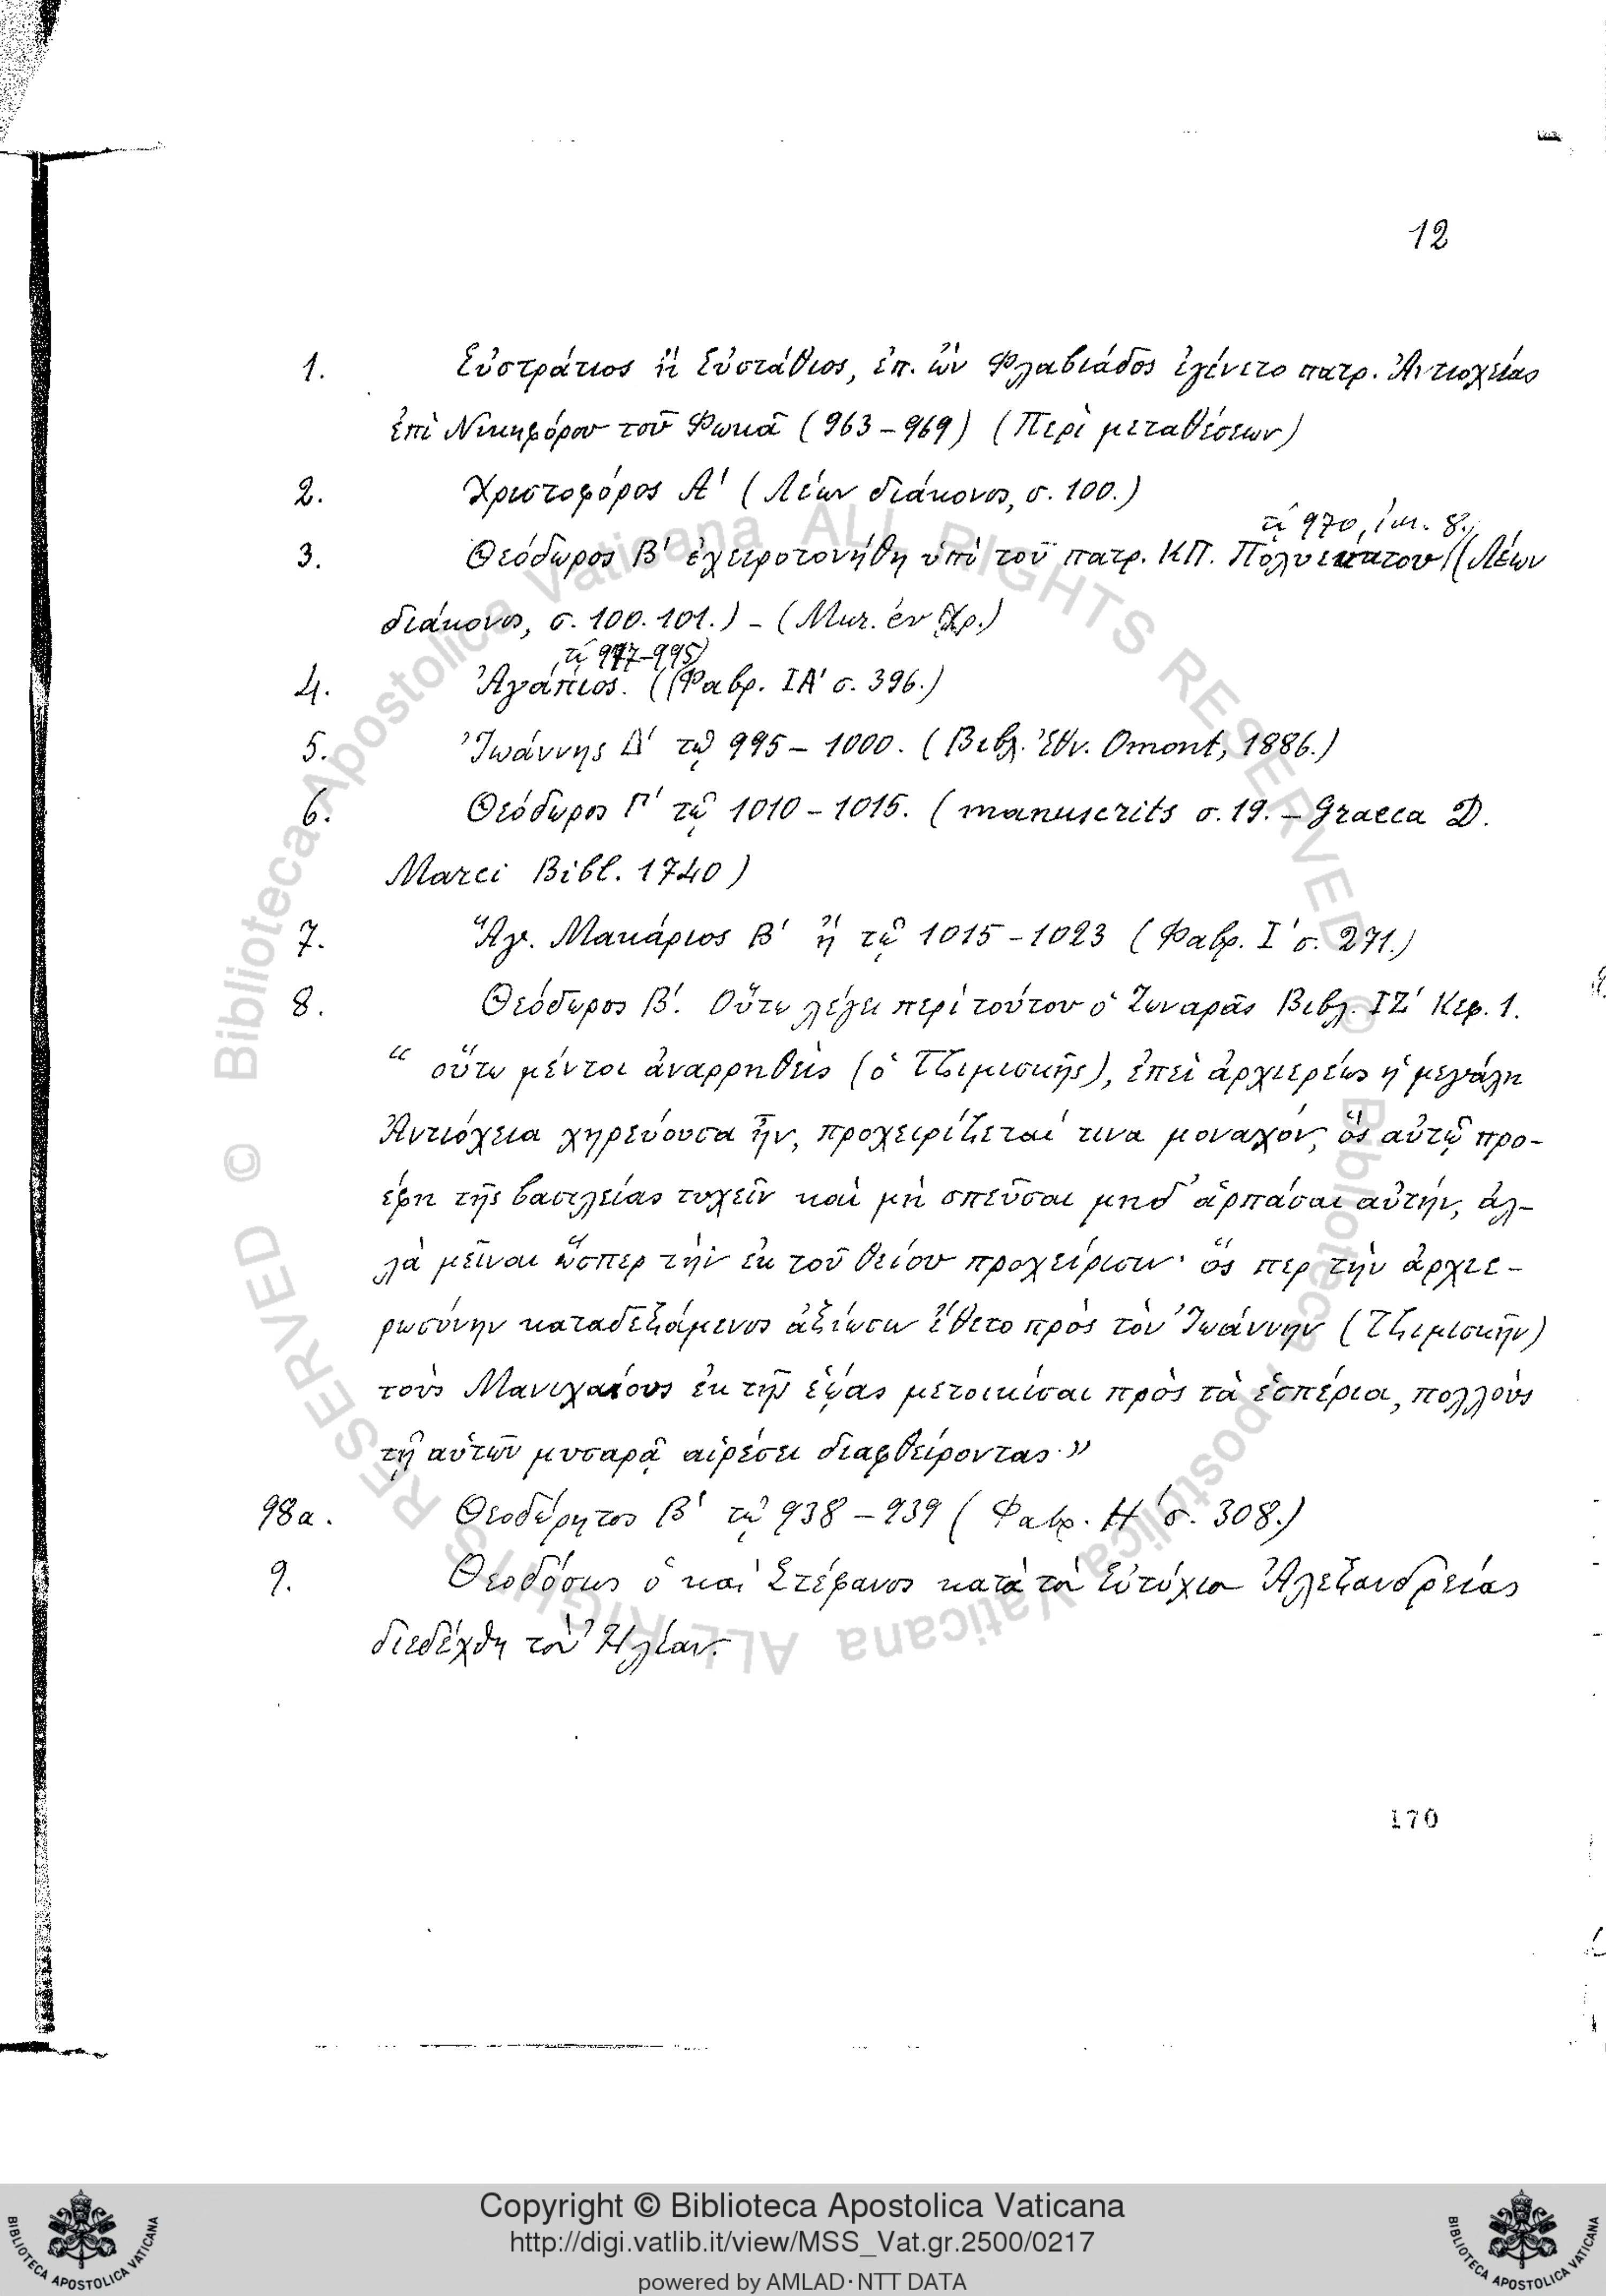 12
1. Εὐστράτιος ἢ Εὐστάθιος, ἐπ. ὢν Φλαβιάδος ἐγένετο πατρ. Ἀντιοχείας
ἐπὶ Νικηφόρου τοῦ Φωκᾶ (963-969) (Περὶ μεταθέσεων)
2. Χριστοφόρος Α' (Λέων διάκονος, σ. 100.)
τῷ 970, ἰαν. 8.
3. Θεόδωρος Β' ἐχειροτονήθη ὑπὸ τοῦ πατρ. ΚΠ. Πολυεύκτου (Λέων
διάκονος, σ. 100. 101.) - (Μιχ. ἐν Χρ.)
τῷ 977-995
4. Ἀγάπιος. (Φαβρ. ΙΑ' σ. 396.)
5. Ἰωάννης Δ' τῷ 995-1000. (Βιβλ. Ἐθν. Omont, 1886.)
6. Θεόδωρος Γ' τῷ 1010-1015. (manuscrits σ. 19. - Graeca D.
Marci Bibl. 1740)
7. Ἅγ. Μακάριος Β' ἢ τῷ 1015-1023 (Φαβρ. Ι' σ. 271.)
8. Θεόδωρος Β'. Οὕτω λέγει περὶ τούτου ὁ Ζωναρᾶς Βιβλ. ΙΖ' Κεφ. 1.
“ οὕτω μέντοι ἀναρρηθεὶς (ὁ Τζιμισκῆς), ἐπεὶ ἀρχιερέως ἡ μεγάλη
Ἀντιόχεια χηρεύουσα ἦν, προχειρίζεταί τινα μοναχόν, ὃς αὐτῷ προ-
έφη τῆς βασιλείας τυχεῖν καὶ μὴ σπεῦσαι μηδ' ἁρπάσαι αὐτήν, ἀλ-
λὰ μεῖναι ὥσπερ τὴν ἐκ τοῦ θείου προχείρισιν· ὅς περ τὴν ἀρχιε-
ρωσύνην καταδεξάμενος ἀξίωσιν ἔθετο πρὸς τὸν Ἰωάννην (Τζιμισκῆν)
τοὺς Μανιχαίους ἐκ τῆς ἑῴας μετοικίσαι πρὸς τὰ ἑσπέρια, πολλοὺς
τῇ αὐτῶν μυσαρᾷ αἱρέσει διαφθείροντας.»
98α. Θεοδώρητος Β' τῷ 938-939 (Φαβρ. Η' σ. 308.)
9. Θεοδόσιος ὁ καὶ Στέφανος κατὰ τὸν Εὐτύχιον Ἀλεξανδρείας
διεδέχθη τὸν Ἠλίαν.
170
Copyright © Biblioteca Apostolica Vaticana
http://digi.vatlib.it/view/MSS_Vat.gr.2500/0217
powered by AMLAD·NTT DATA